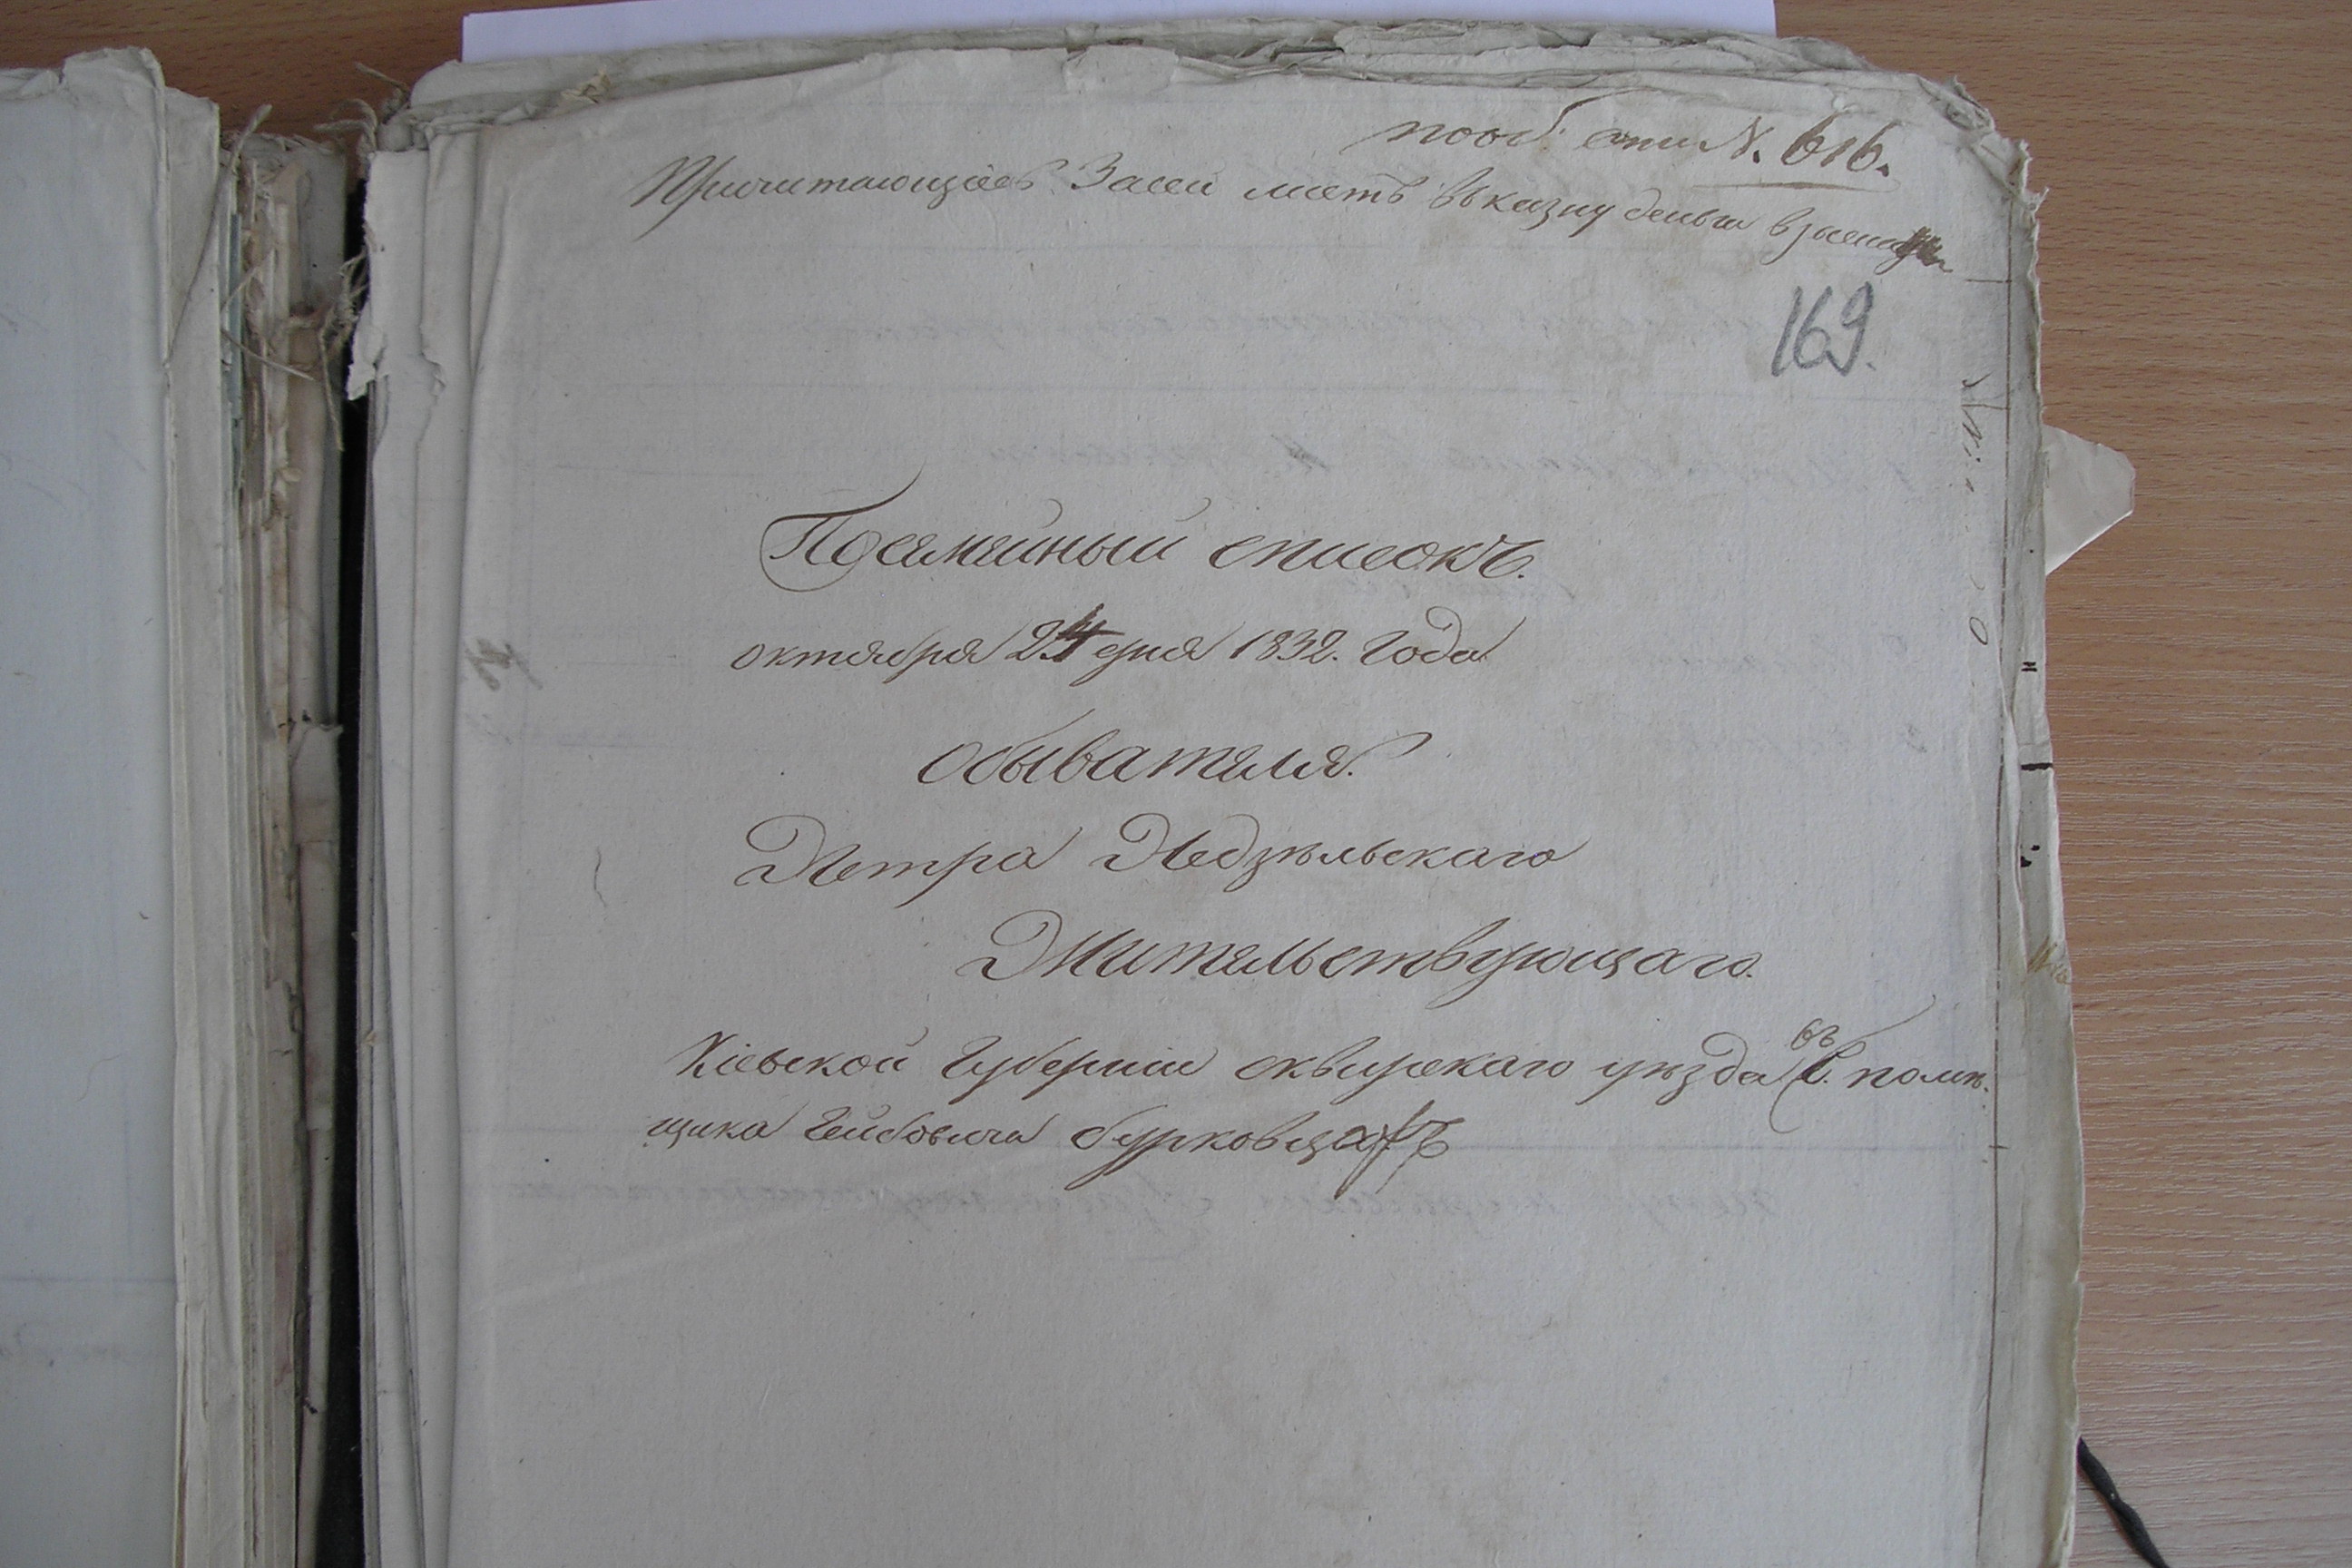 пооб. опи N. 616.
Причитающіесь Засей листъ въ казну деньги взысканы
169.
Посемейный списокъ.
октября 24 дня 1832. Года
Обывателя.
Петра Недзѣльскаго
Жительствующаго.
Кіевской Губерніи сквирскаго уѣзда въ С. помѣ-
щика Гейбовича бурковцахъ